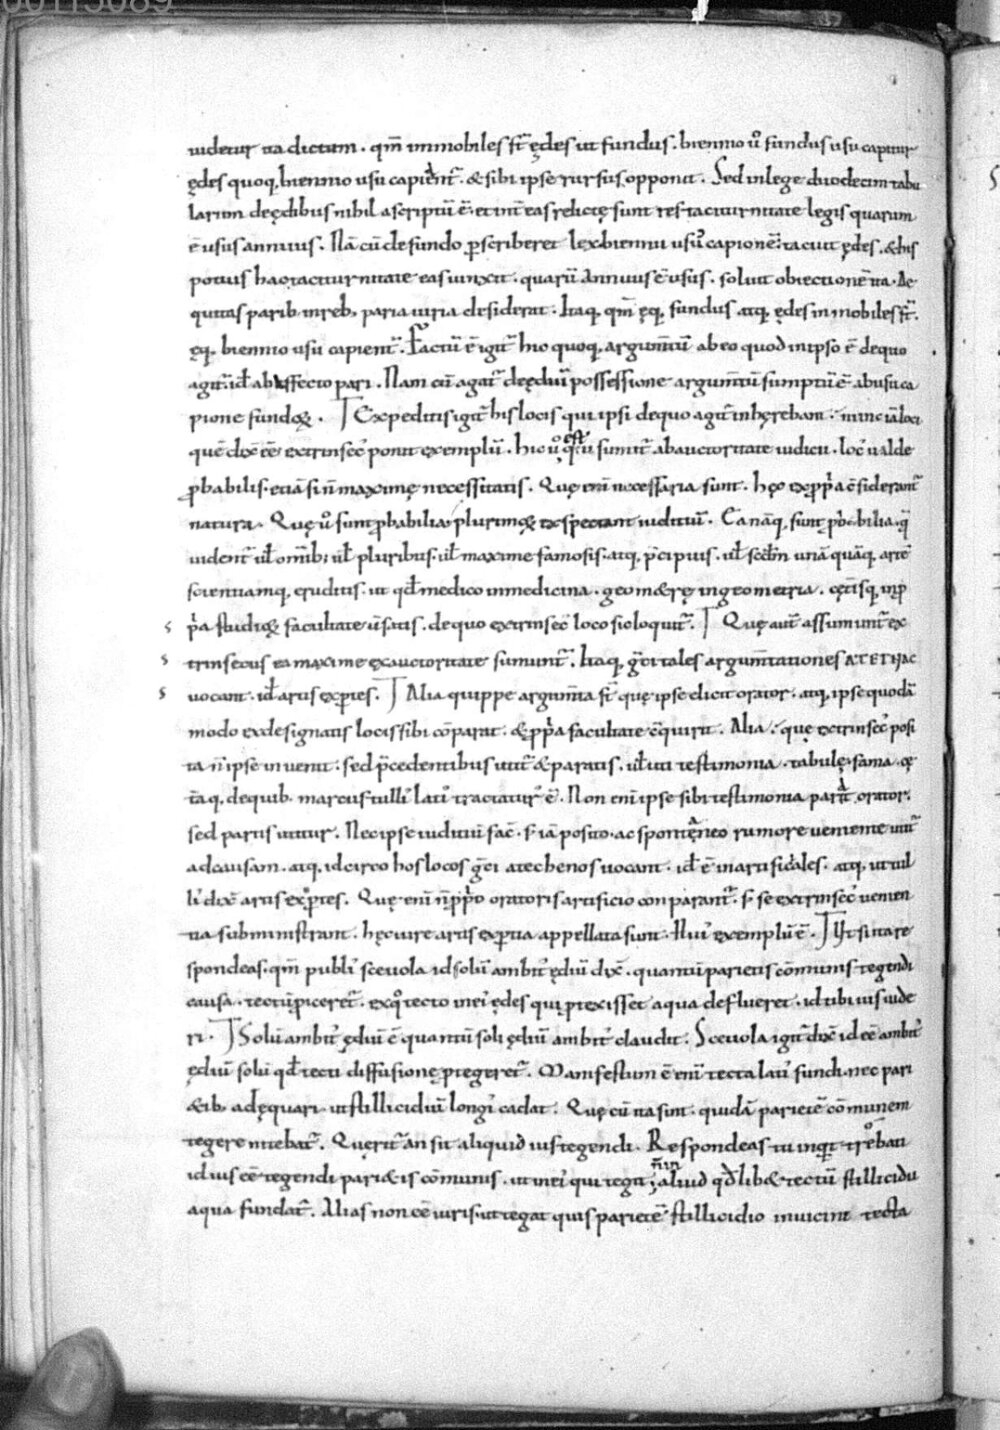 00113089
uidetur ita dictum . qm̄ immobiles st̄ ędes ut fundus . biennio ů fundus usu capitur
ędes quoq; biennio usu capient̄ . & sibi ipse rursus opponit . Sed in lege duodecim tabu
larum de ędibus nihil ascriptū ē . et int̄ eas relictę sunt res taciturnitate legis quarum
ē usus annuus . Nā cū de fundo pscriberet lex biennii usu capionē . tacuit ędes . & his
potius hac taciturnitate eas iunxit . quarū annuus ē usus . soluit obiectionē ita . Ae
quitas parib; in reb; paria iura desiderat . Itaq; qm̄ ęq; fundus atq; ędes inmobiles st̄ .
ęq; biennio usu capient̄ . Factū ē igit̄ hic quoq; argum̄tū ab eo quod in ipso ē de quo
agit̄ . id ab effecto pari . Nam cū agat̄ de ędiū possessione argum̄tū sumptū ē ab usu ca
pione fundoꝝ . Expeditis igit̄ his locis qui ipsi de quo agit̄ inhęrebant . nunc
quē dix̄ eē extrinsec̾ ponit exemplū . hic ů sumit̄ ab auctoritate iudicii . loc̾ ualde
pbabilis . etiā si n̄ maximę necessitatis . Quę eni necessaria sunt . hęc ex ppa c̄siderant̄
natura . Quę ů sunt pbabilia plurimoꝝ exspectant iuditiū . Ea nāq; sunt pbabilia . q̄
uident̄ ul omib; ul pluribus . ul maxime famosis . atq; p̄cipuis . ul scd̄m unā quāq; artē
scientiamq; eruditis . ut qd̄ medico in medicina . geom&rę in geometria . cęt̄isq; in p
pa studioꝝ facultate uersatis . de quo extrinsec̾ loco sic loquit̄ . Quę aut̄ assumunt̄ ex
trinsecus ea maxime ex auctoritate sumunt̄ . Itaq; gręci tales argum̄tationes ATETHAC
uocant . id artis exptes . Alia quippe argum̄ta st̄ quę ipse elicit orator . atq; ipse quodā
modo ex designatis locis sibi cōparat . & ppa facultate c̄quirit . Alia . quę extrinsec̾ posi
ta n̄ ipse inuenit . sed p̄cedentibus utit̄ & paratis . ul uti testimonia . tabulę . fama . cę
t̄aq; de quib; marcus tulli̾ lati̾ tractatur̾ ē . Non eni ipse sibi testimonia parat orator .
sed partis utitur . Nec ipse iuditiū fac̄ . s; iā posito . ac spontaneo rumore ueniente utit̄
ad causam . atq; idcirco hos locos gręci atechenos uocant . id ē inartificiales . atq; ut tul
li̾ dix̄ artis exptes . Quę eni n̄ pprio oratoris artificio conparant̄ . s; se extrinsec̾ uenien
tia subministrant . hęc iure artis exptia appellata sunt . Hui̾ exemplū ē . Ut si ita re
spondeas . qm̄ publi̾ sceuola id solū ambit̾ ędiū dix̄ . quantū parietis cōmunis tegendi
causa . tectū piceret̄ . ex q̊ tecto in ei̾ ędes qui ptexisset aqua deflueret . id tibi ius uide
ri . Solū ambit̾ ędiū ē quantū soli ędiū ambit̾ claudit . Sceuola igit̄ dix̄ id eē ambit̾
ędiū solū qd̄ tecti diffusione ptegeret̄ . Manifestum ē enī tecta lati̾ fundi . nec pari
&ib; adęquari . ut stillicidiū longi̾ cadat . Quę cū ita sint . quidā parietē cōmunem
tegere nitebat̄ . Querit̄ an sit aliquid ius tegendi . Respondeas tu inquit trebati
id ius eē tegendi pari&is cōmunis . ut in ei̾ qui tegit , n̄ in aliud qd̄lib& tectū stillicidii
aqua fundat̄ . Alias non eē iuris . ut tegat quis parietē stillicidio in uicini tecta